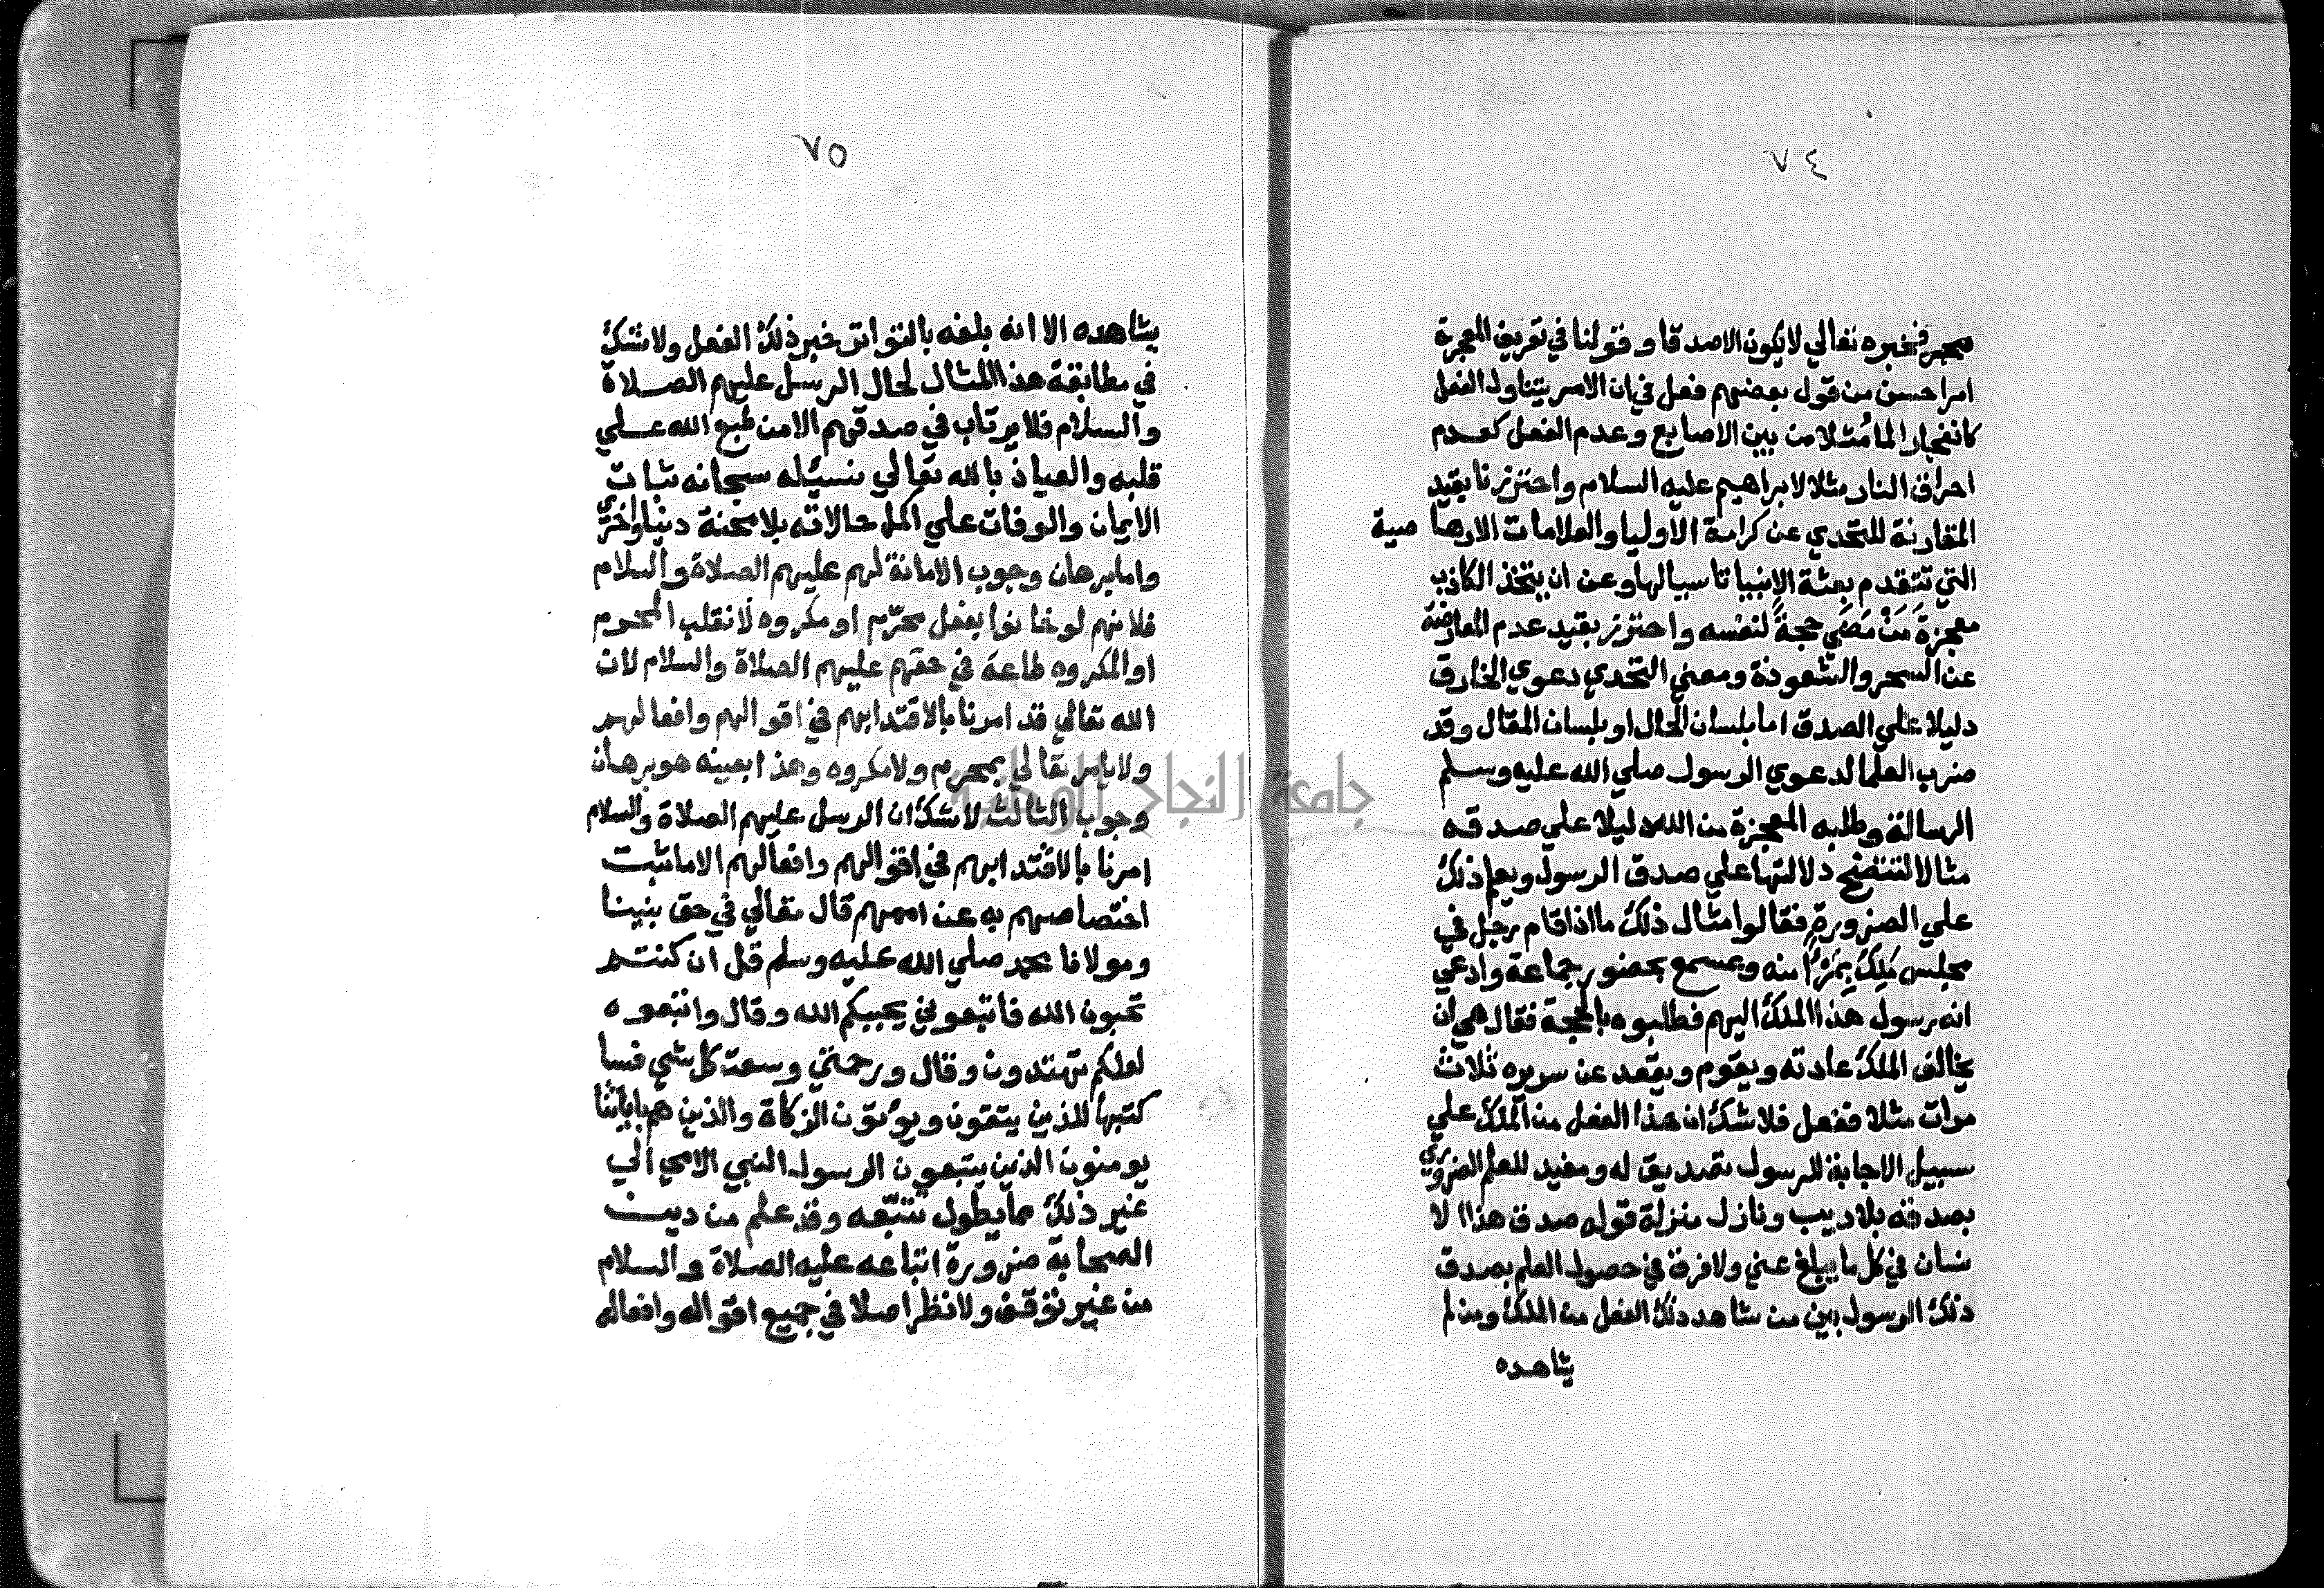 ٧٤
فخبره تعالي لا يكون الا صدقا وقولنا في تعريف المعجزة
امرا حسن من قول بعضهم فعل في ان الامر يتناول الفعل
كانفجار الما مثلا من بين الاصابع وعدم الفعل كعدم
احراق النار مثلا لابراهيم عليه السلام واحترزنا بقيد
المقارنة للتحدي عن كرامة الاوليا والعلامات الارها صية
التي تتقدم بعثة الانبيا تاسيا لها وعن ان يتخذ الكاذب
معجزة من مضي حجة لنفسه واحترز بقيد عدم المعارضة
عن السحر والشعوذة ومعني التحدي دعوي الخارق
دليلا علي الصدق اما بلسان الحال او بلسان المقال وقد
ضرب العلما لدعوي الرسول صلي الله عليه وسلم
الرسالة وطلبه المعجزة من الله دليلا علي صدقه
مثالا لتتضح دلالتها علي صدق الرسول ويعلم ذلك
علي الضرورة فقالوا مثال ذلك ما اذا قام رجل في
مجلس ملك بمرءا منه وبمسمع بحضور جماعة وادعي
انه رسول هذا الملك اليهم فطلبوه بالحجة فقال هي ان
يخالف الملك عادته ويقوم ويقعد عن سريره ثلاث
مرات مثلا ففعل فلا شك ان هذا الفعل من الملك علي
سبيل الاجابة للرسول تصديق له ومفيد للعلم الضروري
بصدقه بلا ريب ونازل منزلة قوله صدق هذا الا
نسان في كل ما يبلغ عني ولا فرق في حصول العلم بصدق
ذلك الرسول بين من شاهد ذلك الفعل من الملك ومن لم
يشاهده
٧٥
يشاهده الا انه بلغه بالتواتر خبر ذلك الفعل ولا شك
في مطابقة هذا المثال لحال الرسل عليهم الصلاة
والسلام فلا يرتاب في صدقهم الا من طبع الله علي
قلبه والعياذ بالله تعالي نسئله سبحانه ثبات
الايمان والوفات علي اكمل حالاته بلا محنة دنيا واخري
واما برهان وجوب الامانة لهم عليهم الصلاة والسلام
فلا نهم لو خانوا بفعل محرم او مكروه لا نقلب المحروم
او المكروه طاعة في حقهم عليهم الصلاة والسلام لان
الله تعالي قد امرنا بالاقتدا بهم في اقوالهم وافعالهم
ولا يامر تعالي بمحرم ولا مكروه وهذا بعينه هو برهان
وجوب الثالث لا شك ان الرسل عليهم الصلاة والسلام
امرنا بالاقتدا بهم في اقوالهم وافعالهم الا ما ثبت
اختصاصهم به عن اممهم قال تعالي في حق نبينا
ومولانا محمد صلي الله عليه وسلم قل ان كنتم
تحبون الله فاتبعوني يحببكم الله وقال واتبعوه
لعلكم تهتدون وقال ورحمتي وسعت كل شي فسا
كتبها للذين يتقون ويؤتون الزكاة والذين هم باياتنا
يومنون الذين يتبعون الرسول النبي الامي الي
غير ذلك مما يطول تتبعه وقد علم من دين
الصحابة ضرورة اتباعه عليه الصلاة والسلام
من غير توقف ولا نظر اصلا في جميع اقواله وافعاله
جامعة النجاح الوطنية